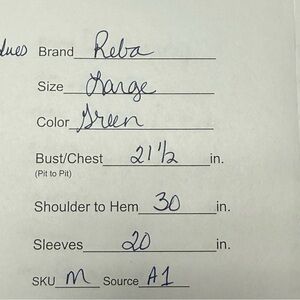 Brand Reba
Size Large
Color Green
Bust/Chest 21 1/2 in.
(Pit to Pit)
Shoulder to Hem 30 in.
Sleeves 20 in.
SKU M Source A1